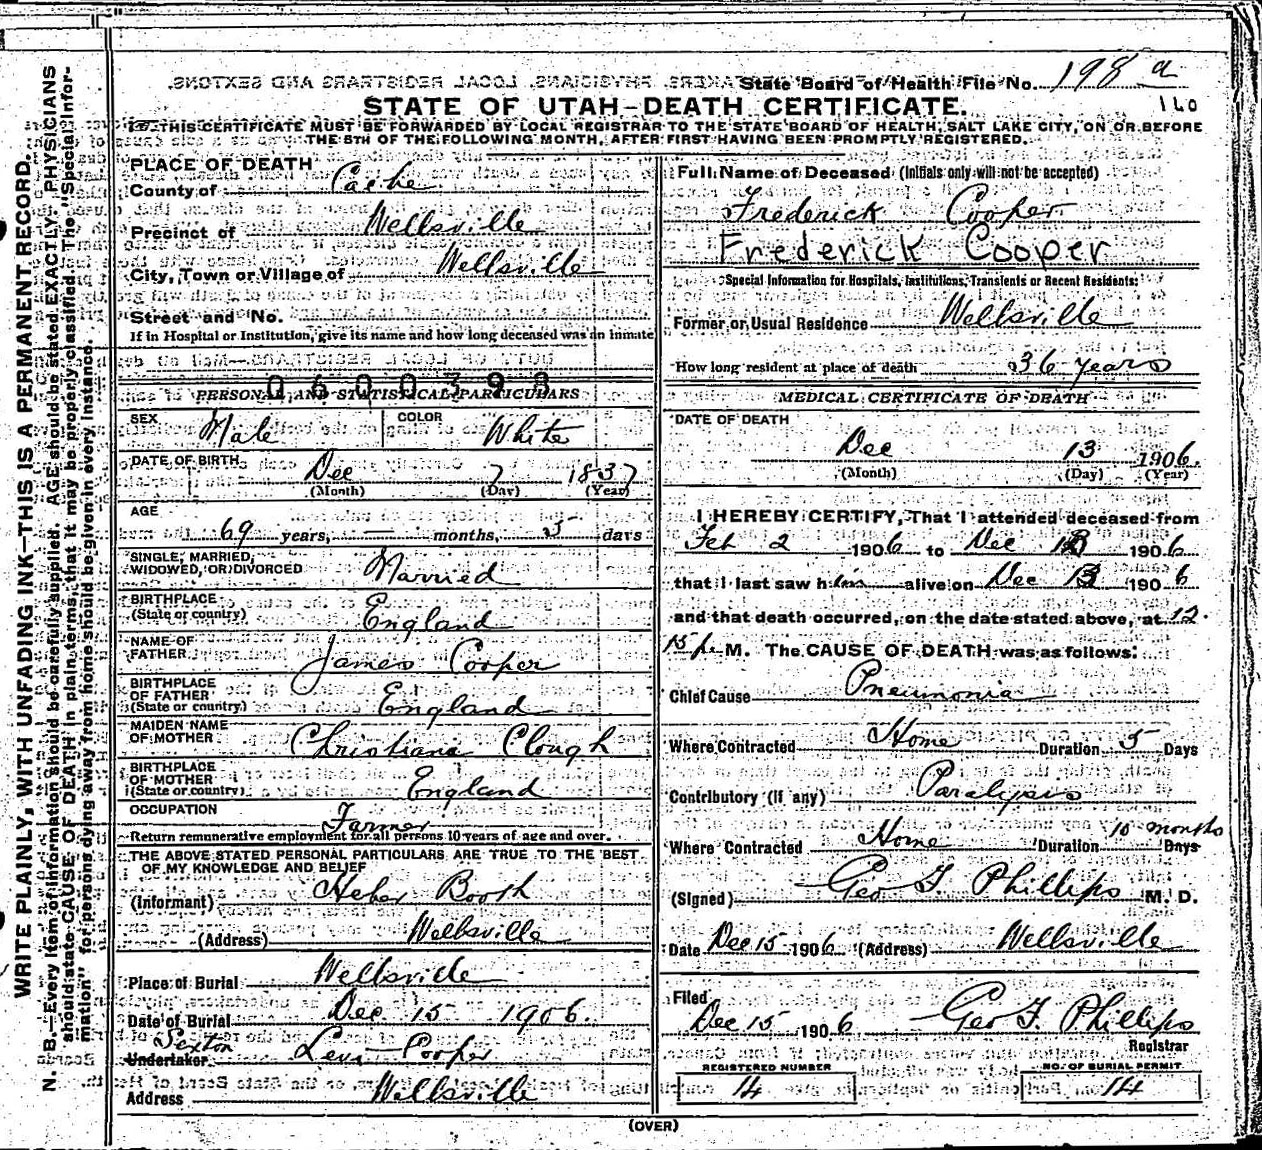 State Board of Health File No. 198 a
160
STATE OF UTAH—DEATH CERTIFICATE.
THIS CERTIFICATE MUST BE FORWARDED BY LOCAL REGISTRAR TO THE STATE BOARD OF HEALTH, SALT LAKE CITY, ON OR BEFORE
THE 5TH OF THE FOLLOWING MONTH, AFTER FIRST HAVING BEEN PROMPTLY REGISTERED.
WRITE PLAINLY, WITH UNFADING INK—THIS IS A PERMANENT RECORD.
N. B.—Every item of information should be carefully supplied. AGE should be stated EXACTLY. PHYSICIANS
should state CAUSE OF DEATH in plain terms, that it may be properly classified. The "Special Infor-
mation" for persons dying away from home should be given in every instance.
PLACE OF DEATH
County of Cache
Precinct of Wellsville
City, Town or Village of Wellsville
Street and No.
If in Hospital or Institution, give its name and how long deceased was an inmate
0600398
PERSONAL AND STATISTICAL PARTICULARS
SEX Male COLOR White
DATE OF BIRTH Dec 7 1837
(Month) (Day) (Year)
AGE
69 years, — months, 5 days
SINGLE, MARRIED,
WIDOWED, OR DIVORCED Married
BIRTHPLACE
(State or country) England
NAME OF
FATHER James Cooper
BIRTHPLACE
OF FATHER
(State or country) England
MAIDEN NAME
OF MOTHER Christiana Clough
BIRTHPLACE
OF MOTHER
(State or country) England
OCCUPATION
Farmer
Return remunerative employment for all persons 10 years of age and over.
THE ABOVE STATED PERSONAL PARTICULARS ARE TRUE TO THE BEST
OF MY KNOWLEDGE AND BELIEF
(Informant) Heber Booth
(Address) Wellsville
Place of Burial Wellsville
Date of Burial Dec 15 1906.
Sexton
Undertaker Levi Cooper
Address Wellsville
Full Name of Deceased (Initials only will not be accepted)
Frederick Cooper
Frederick Cooper
Special Information for Hospitals, Institutions, Transients or Recent Residents:
Former or Usual Residence Wellsville
How long resident at place of death 36 years
MEDICAL CERTIFICATE OF DEATH
DATE OF DEATH
Dec 13 1906.
(Month) (Day) (Year)
I HEREBY CERTIFY, That I attended deceased from
Feb 2 1906 to Dec 13 1906.
that I last saw him alive on Dec 13 1906
and that death occurred, on the date stated above, at 12.
15 p. M. The CAUSE OF DEATH was as follows:
Chief Cause Pneumonia
Where Contracted Home Duration 5 Days
Contributory (if any) Paralysis
10 months
Where Contracted Home Duration Days
(Signed) Geo F. Phillips M. D.
Date Dec 15 1906 (Address) Wellsville
Filed
Dec 15 1906 Geo F. Phillips
Registrar
REGISTERED NUMBER NO. OF BURIAL PERMIT
14 14
(OVER)